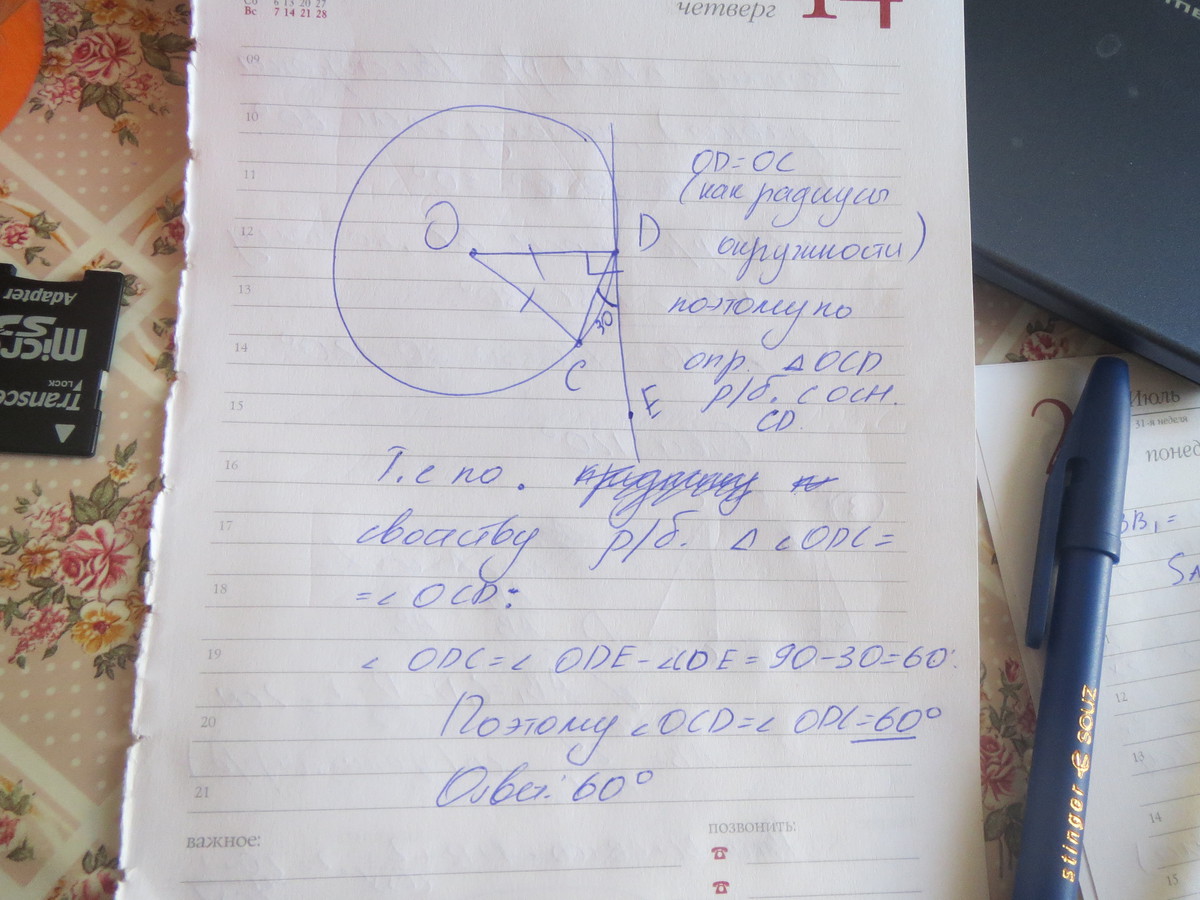 Сб 6 13 20 27
Вс 7 14 21 28
четверг 14
09
10
11
12
13
14
15
16
17
18
19
20
21
O
D
C
E
30
OD=OC
(как радиусы
окружности)
поэтому по
опр. △ OCD
р/б. с осн.
CD.
Т.е по.
свойству р/б. △ ∠ODC=
=∠OCD:
∠ODC=∠ODE-∠CDE=90-30=60°.
Поэтому ∠OCD=∠ODC=60°
Ответ: 60°
важное:
позвонить:
Adapter
micro
LOCK
Transce
stinger souz
Июль
31-я неделя
понед
2
BB₁=
SA
12
13
14
15